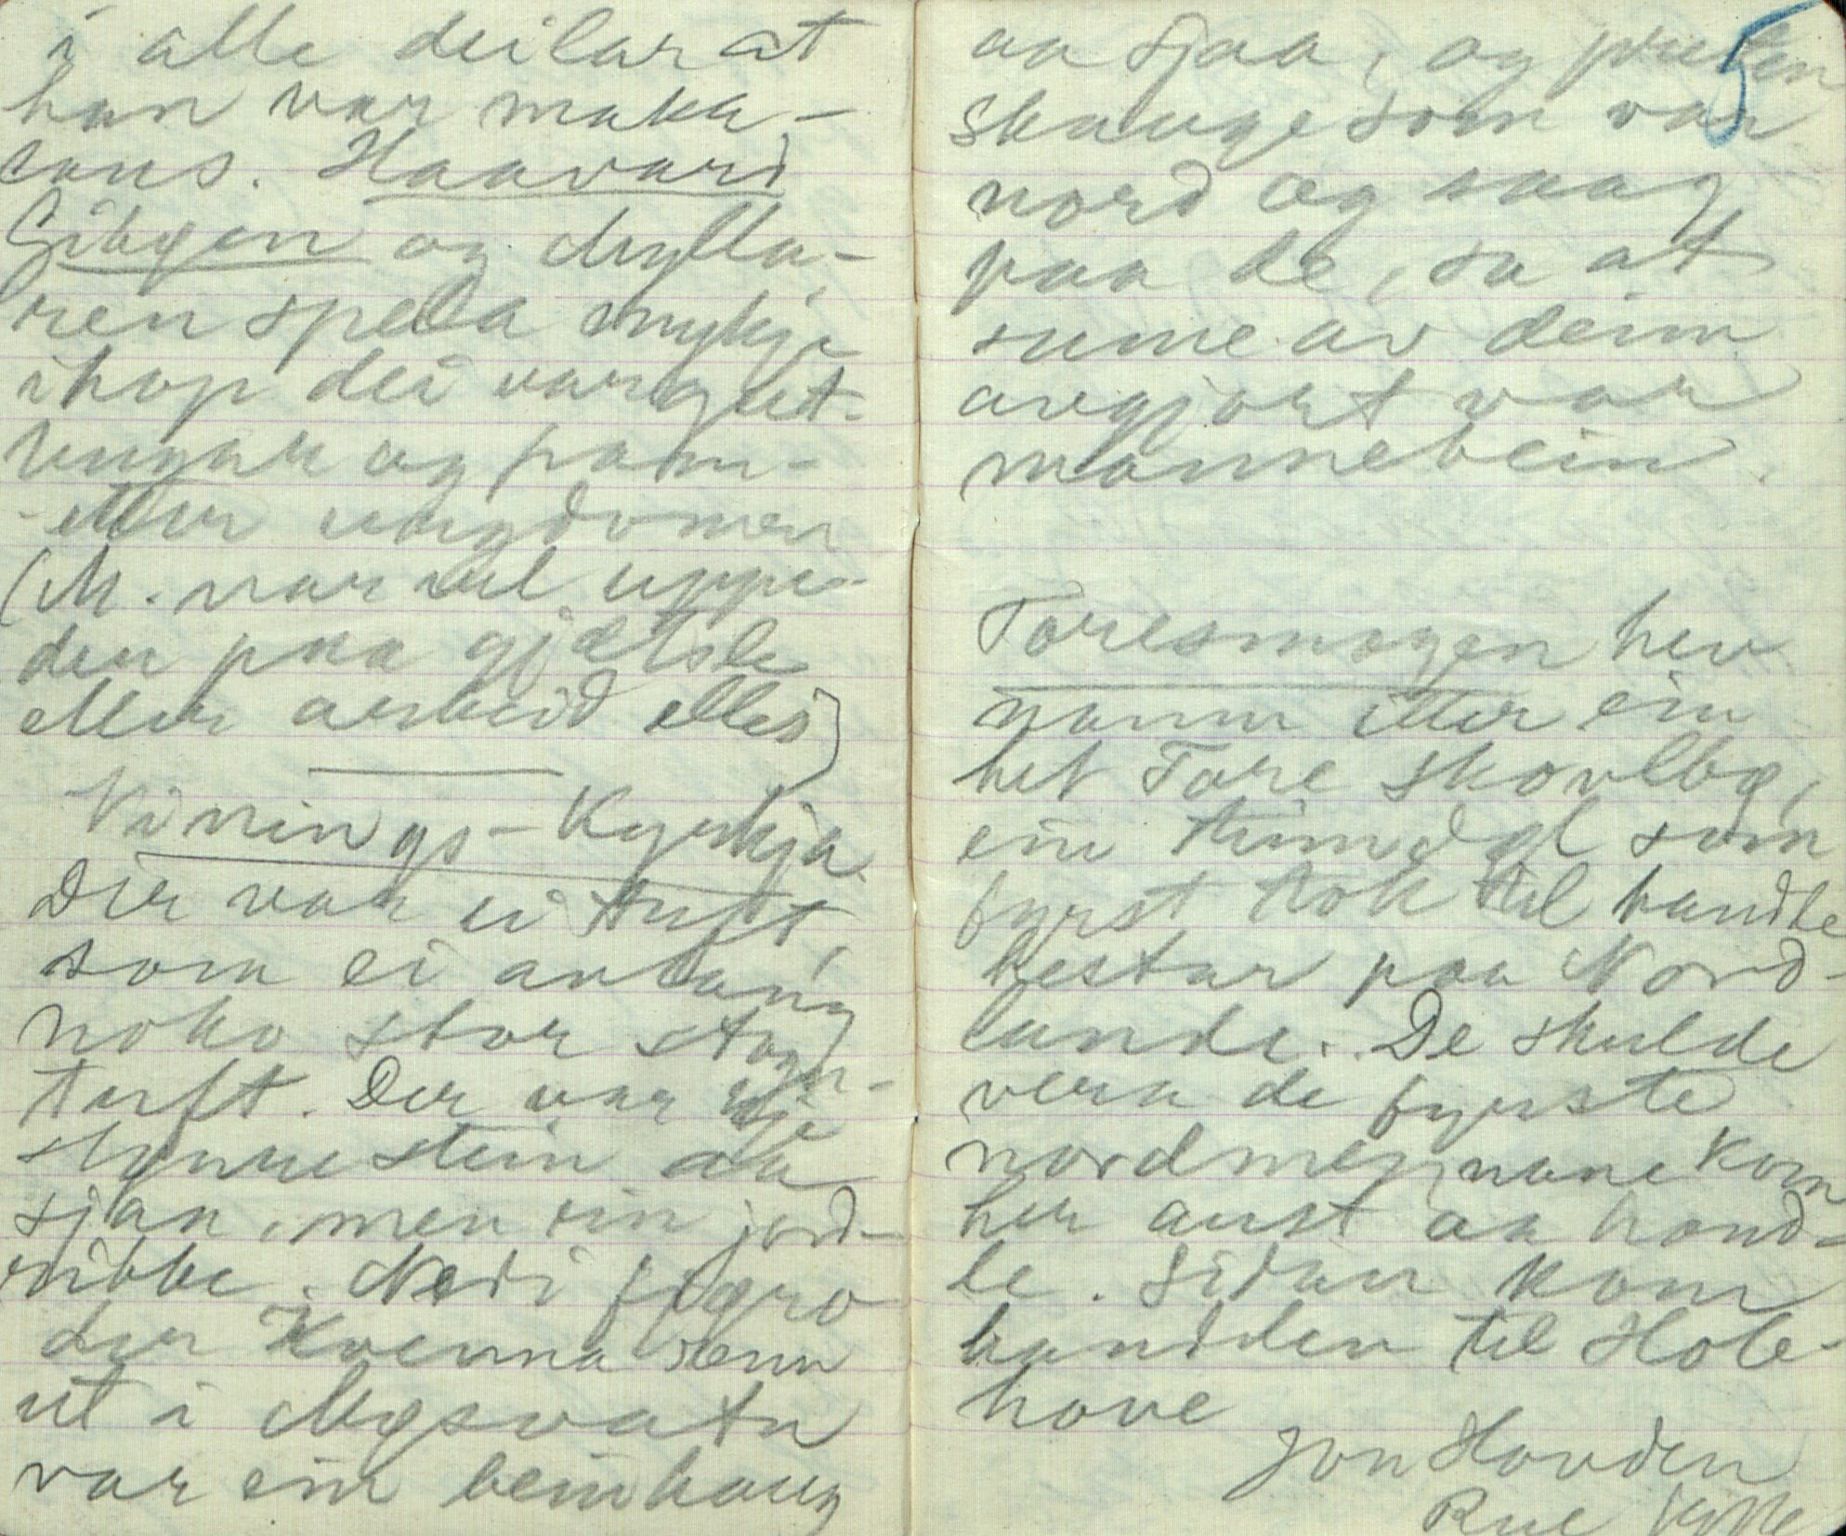 i alle deilar at
han var maka-
laus. Haavard
Gibøen og Myllar-
ren spela mykje
ihop dei var gut-
ungar og fram-
etter ungdomen
(M. var vel uppi
den paa gjætsle
eller arbeid elles)
Vinings-Kyrkja
Der var ei tuft,
som ei anlaug
noko stor stogu-
tuft. Der var ikje
stynne stein aa
sjaa, men ein jord-
ribbe. Nedi fjøro
der Kvenna renn
ut i Møsvatn
var ein beinhaug
5
aa sjaa, og presten
Skauge som var
nord og saag
paa de, sa at
sume av deim
avgjort var
mannebein.
Toresmogen hev
namn etter ein
het Tore Skovlbø,
ein timdøl som
fyrst tok til handle
hestar paa Nord-
lande. De skulde
vera de fyrste
nordmennane kom
her aust aa hand-
le. Sidan kom
handelen til Hole-
hove
Jon Hovden
Rue